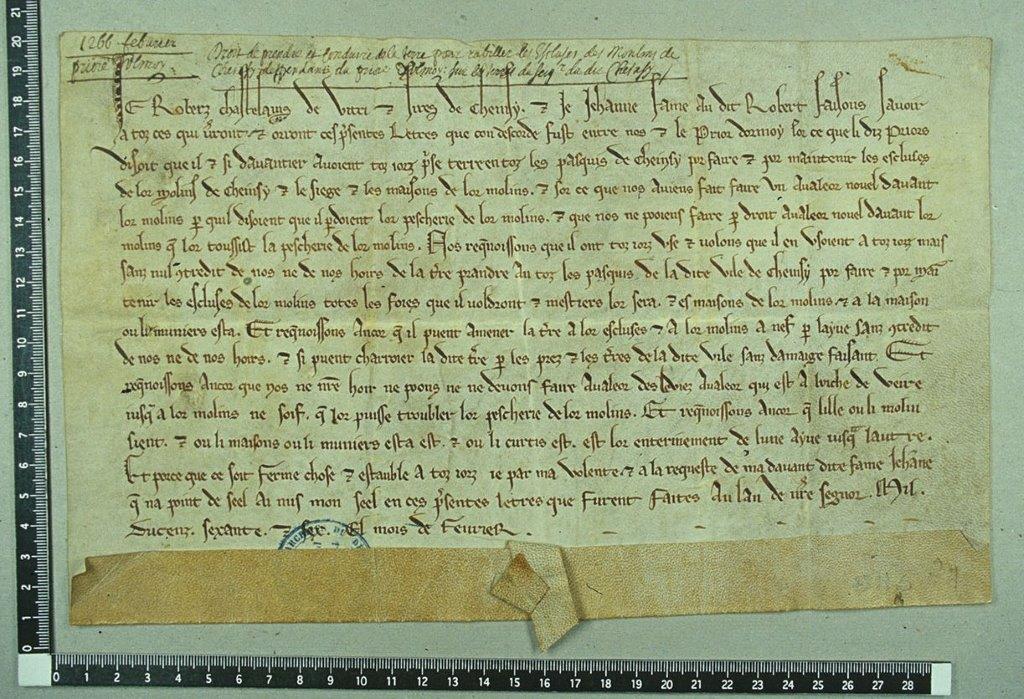 1266 febvrier
prieuré d'Olmoy.
Droit de prendre et conduire de la terre pour rabiller les Escluses des Moulins de
E Roberz chastelains de Vitri & sires de Cheinsy. & Je Jehanne fame au dit Robert faisons savoir
a toz ces qui verront & orront ces p̃sentes Letres que con descorde fust entre nos & le Prior dormoy sor ce que li diz Priors
disoit que il & si davantier avoient toz iorz p̃se terre en toz les pasquis de cheinsy por faire & por maintenir les escluses
de lor molins de cheinsy & le siege & les maisons de lor molins. & sor ce que nos aviens fait faire un avaleor novel davant
lor molins p̱ quil disoient que il p̱doient lor pescherie de lor molins. & que nos ne poiens faire p̱ droit avaleor novel davant lor
molins q̃ lor toussist la pescherie de lor molins. Nos reqnoissons que il ont toz iorz use & volons que il en usoient a toz iorz mais
sanz nul 9tredit de nos ne de nos hoirs de la t̃re prandre an toz les pasquis de la dite vile de Cheinsy por faire & por main
tenir les escluses de lor molins totes les foies que il voldront & mestiers lor sera. & es maisons de lor molins & a la maison
ou li muniers esta. Et reqnoissons ancor q̃ il puent amener la t̃re a lor escluses & a lor molins a nef p̱ layue sanz 9tredit
de nos ne de nos hoirs. & si puent charroier la dite t̃re p̱ les prez & les t̃res de la dite vile sanz damaige faisant. Et
reqnoissons ancor que nos ne nr̃e hoir ne poons ne ne devons faire avaleor des avaleor qui est a buche de veire
iusq̃ a lor molins ne soif. q̃ lor puisse troubler lor pescherie de lor molins. Et reqnoissons ancor q̃ lille ou li molin
sient. & ou li maisons ou li muniers esta est. & ou li curtis est. est lor entierement de lune ayue iusq̃ lautre.
Et porce que ce soit ferme chose & estauble a toz iorz ie par ma volente & a la requeste de ma davant dite fame Jehane
q̃ na point de seel ai mis mon seel en ces p̃sentes letres que furent faites an lan de nr̃e segnor. Mil.
Ducenz. sexante. & sex. El mois de fevrier.